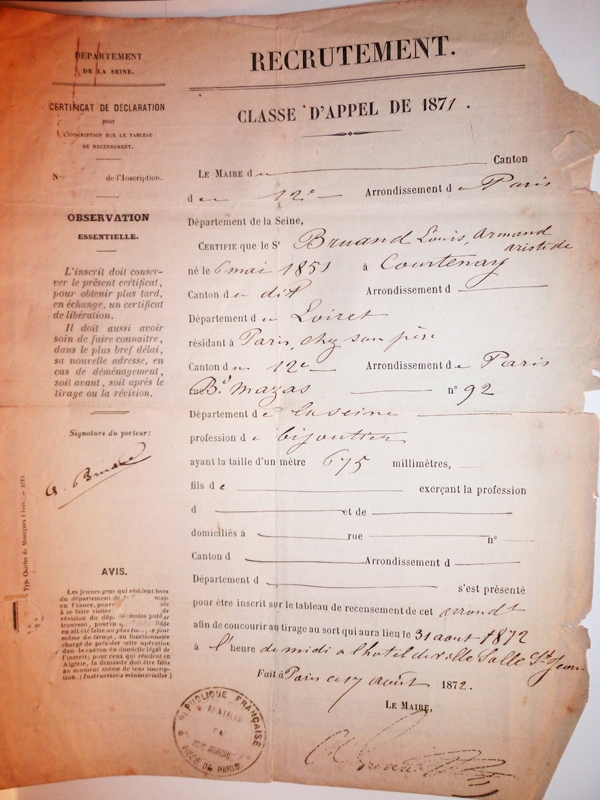 DÉPARTEMENT
DE LA SEINE.
CERTIFICAT DE DÉCLARATION
pour
L'INSCRIPTION SUR LE TABLEAU
DE RECENSEMENT.
N° de l'Inscription.
OBSERVATION
ESSENTIELLE.
L'inscrit doit conser-
ver le présent certificat,
pour obtenir plus tard,
en échange, un certificat
de libération.
Il doit aussi avoir
soin de faire connaitre,
dans le plus bref délai,
sa nouvelle adresse, en
cas de déménagement,
soit avant, soit après le
tirage ou la révision.
Signature du porteur:
Typ. Charles de Mourgues Frères.
AVIS.
Les jeunes gens qui résident hors
du département de la mois
en France, pour
à se faire visiter
révision du dép
trouvent, pourvu
en ait été faite au plus jour
même du tirage, au fonctionnaire
chargé de présider cette opération
dans le canton du domicile légal de
l'inscrit; pour ceux qui résident en
Algérie, la demande doit être faite
au moment même de leur inscrip-
tion (Instructions ministérielles)
RECRUTEMENT.
CLASSE D'APPEL DE 1871.
LE MAIRE du Canton
du 12e Arrondissement de Paris
Département de la Seine,
CERTIFIE que le Sr Bruand Louis, Armand
aristide
né le 6 mai 1851 à Courtenay
Canton du dit Arrondissement d
Département du Loiret
résidant à Paris, chez son père
Canton du 12e Arrondissement de Paris
rue Bd Mazas n° 92
Département de la seine
profession de bijoutier
ayant la taille d'un mètre 675 millimètres,
fils de exerçant la profession
d et de
domiciliés à rue n°
Canton d Arrondissement d
Département d s'est présenté
pour être inscrit sur le tableau de recensement de cet arrondt
afin de concourir au tirage au sort qui aura lieu le 31 aout 1872
à l'heure de midi a l'hotel de ville Salle St Jean
Fait à Paris ce 17 aout 1872.
LE MAIRE,
RÉPUBLIQUE FRANÇAISE
MAIRIE
VILLE DE PARIS